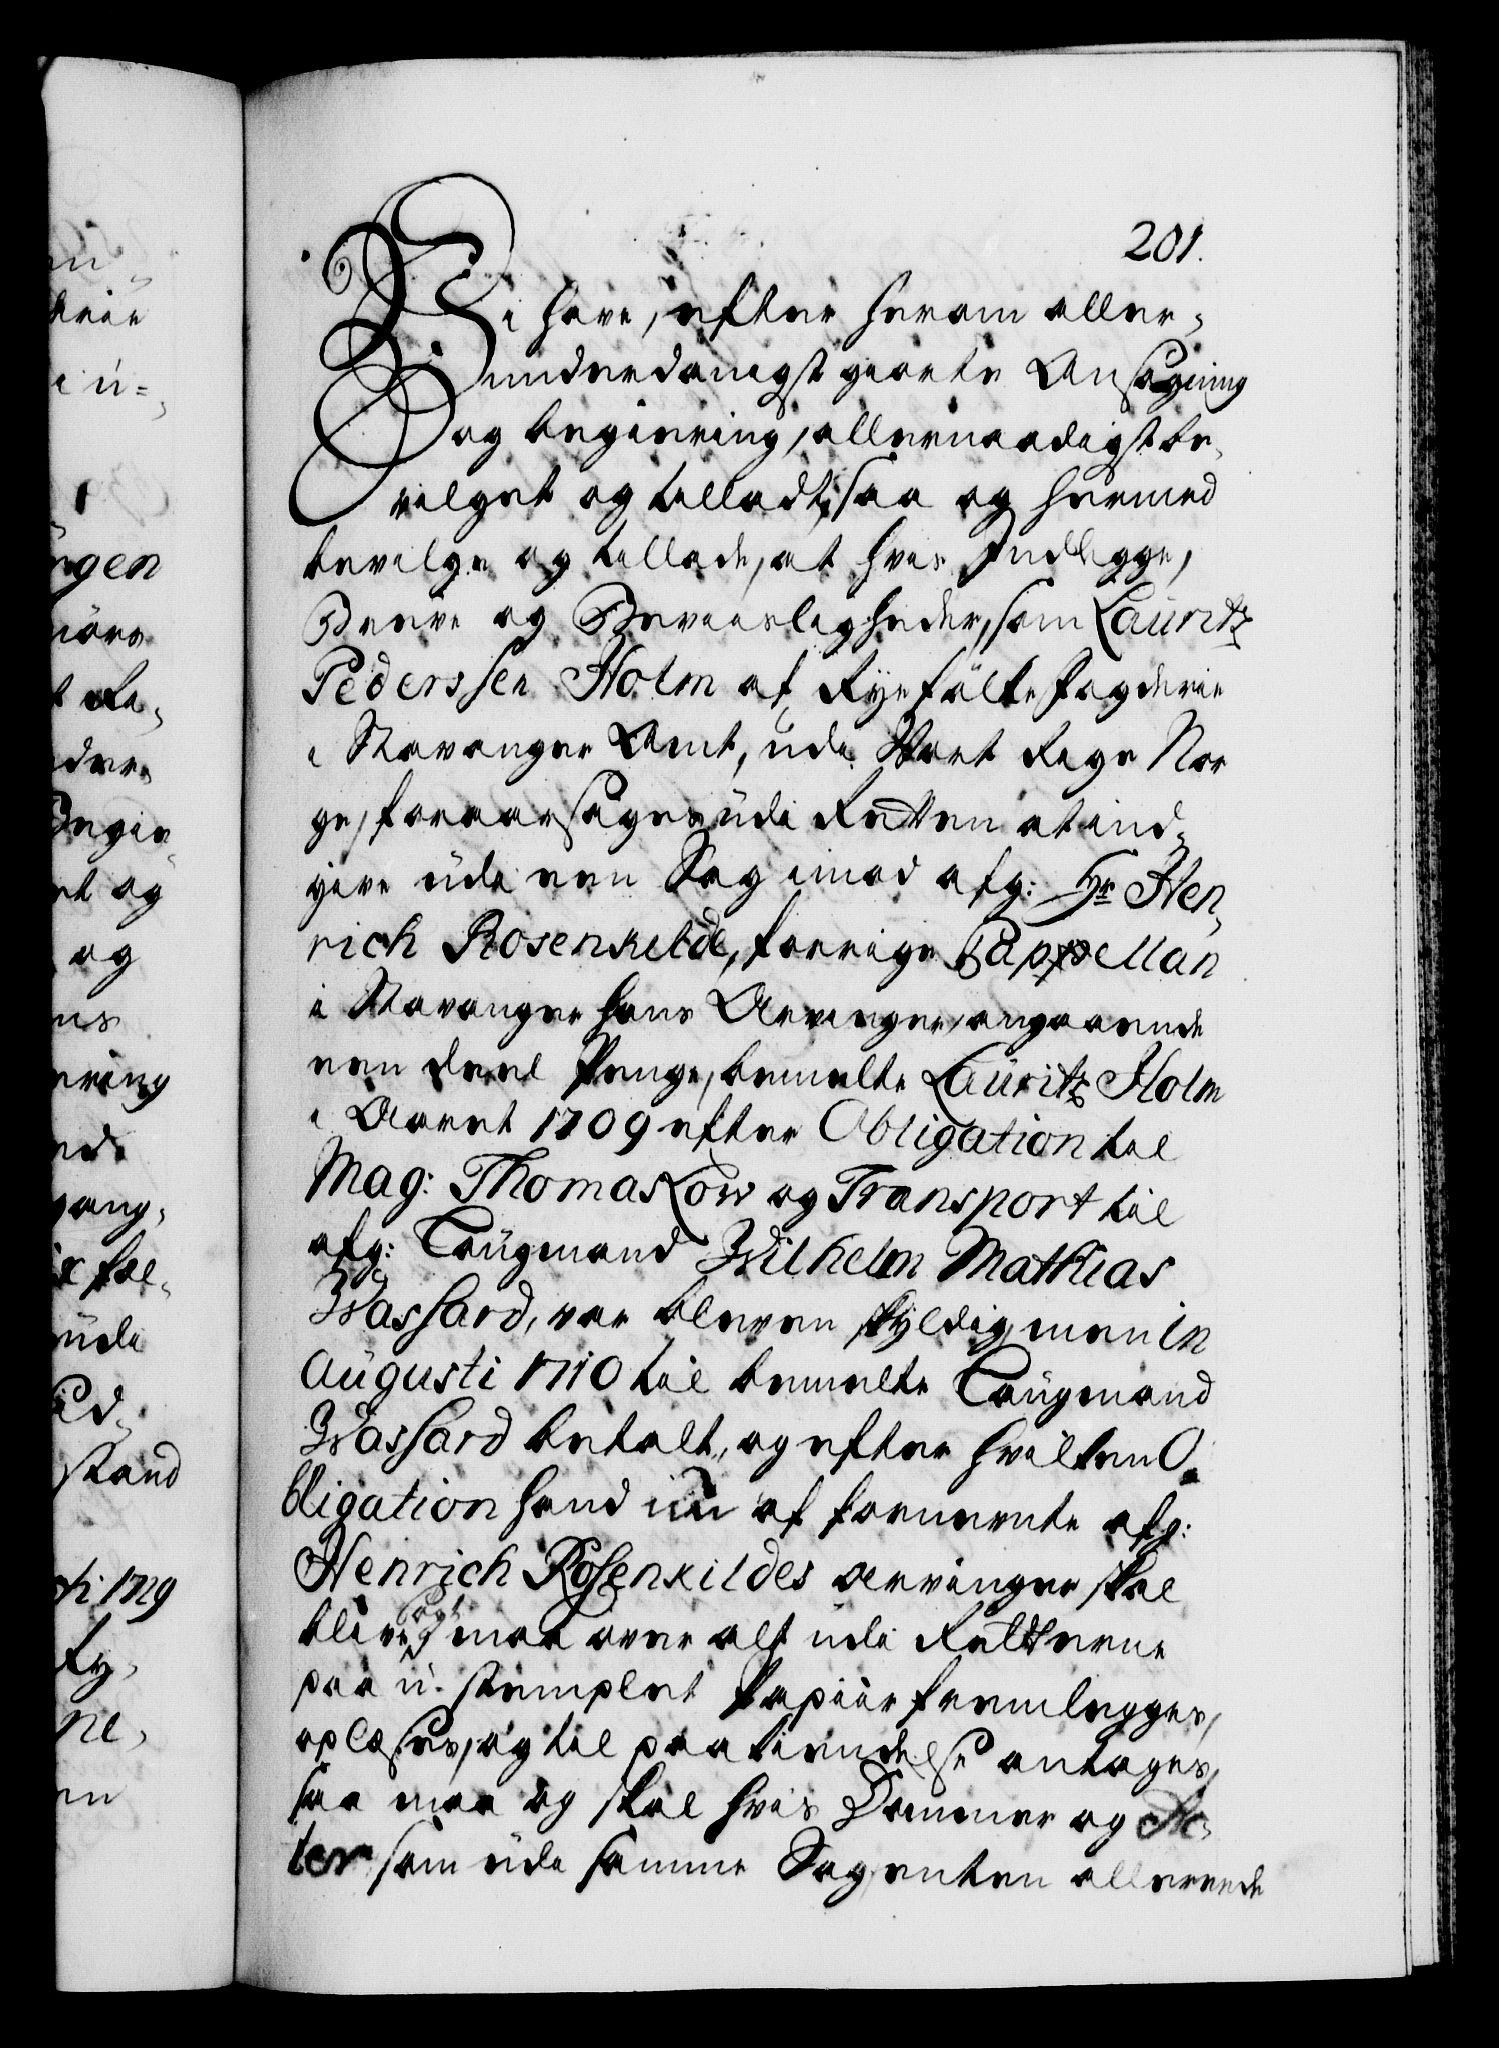 201.
Vi have, efter herom aller-
underdanigst giorte Ansøgning
og begiering, allernaadigst be-
vilget og tilladt, saa og hermed
bevilge og tillade, at hvis Indlegge,
Breve og Beviisligheder, som Lauritz
Pederssen Holm af Ryefylke fogderie
i Stavanger Amt, udi Vort Rige Nor
ge, foraarsages udi Retten at ind-
give udi een Sag imod afg: Hr Hen-
rich Rosenkilde, forrige Cappellan
i Stavanger hans Arvinger, angaaende
een deel Penge, bemelte Lauritz Holm
i Aaret 1709 efter Obligation til
Mag: Thomas Low og Transport til
afg: Laugmand Wilhelm Mathias
Wassard, var bleven skyldig, men in
Augusti 1710 til bemelte Laugmand
Wassard betalt, og efter hvilken O-
bligation hand nu af fornevnte afg:
Henrich Rosenkildes Arvinger skal
blive søgt maa over alt udi Retterne
paa u-stemplet Papiir fremlegges,
oplæses, og til paakiendelse antages,
saa maa og skal hvis Domme og Ac-
ter som udi samme Sag enten allereede
en
rgen
t Re-
Begie
et og
og
ering
gang-
udi
stand
ti 1729